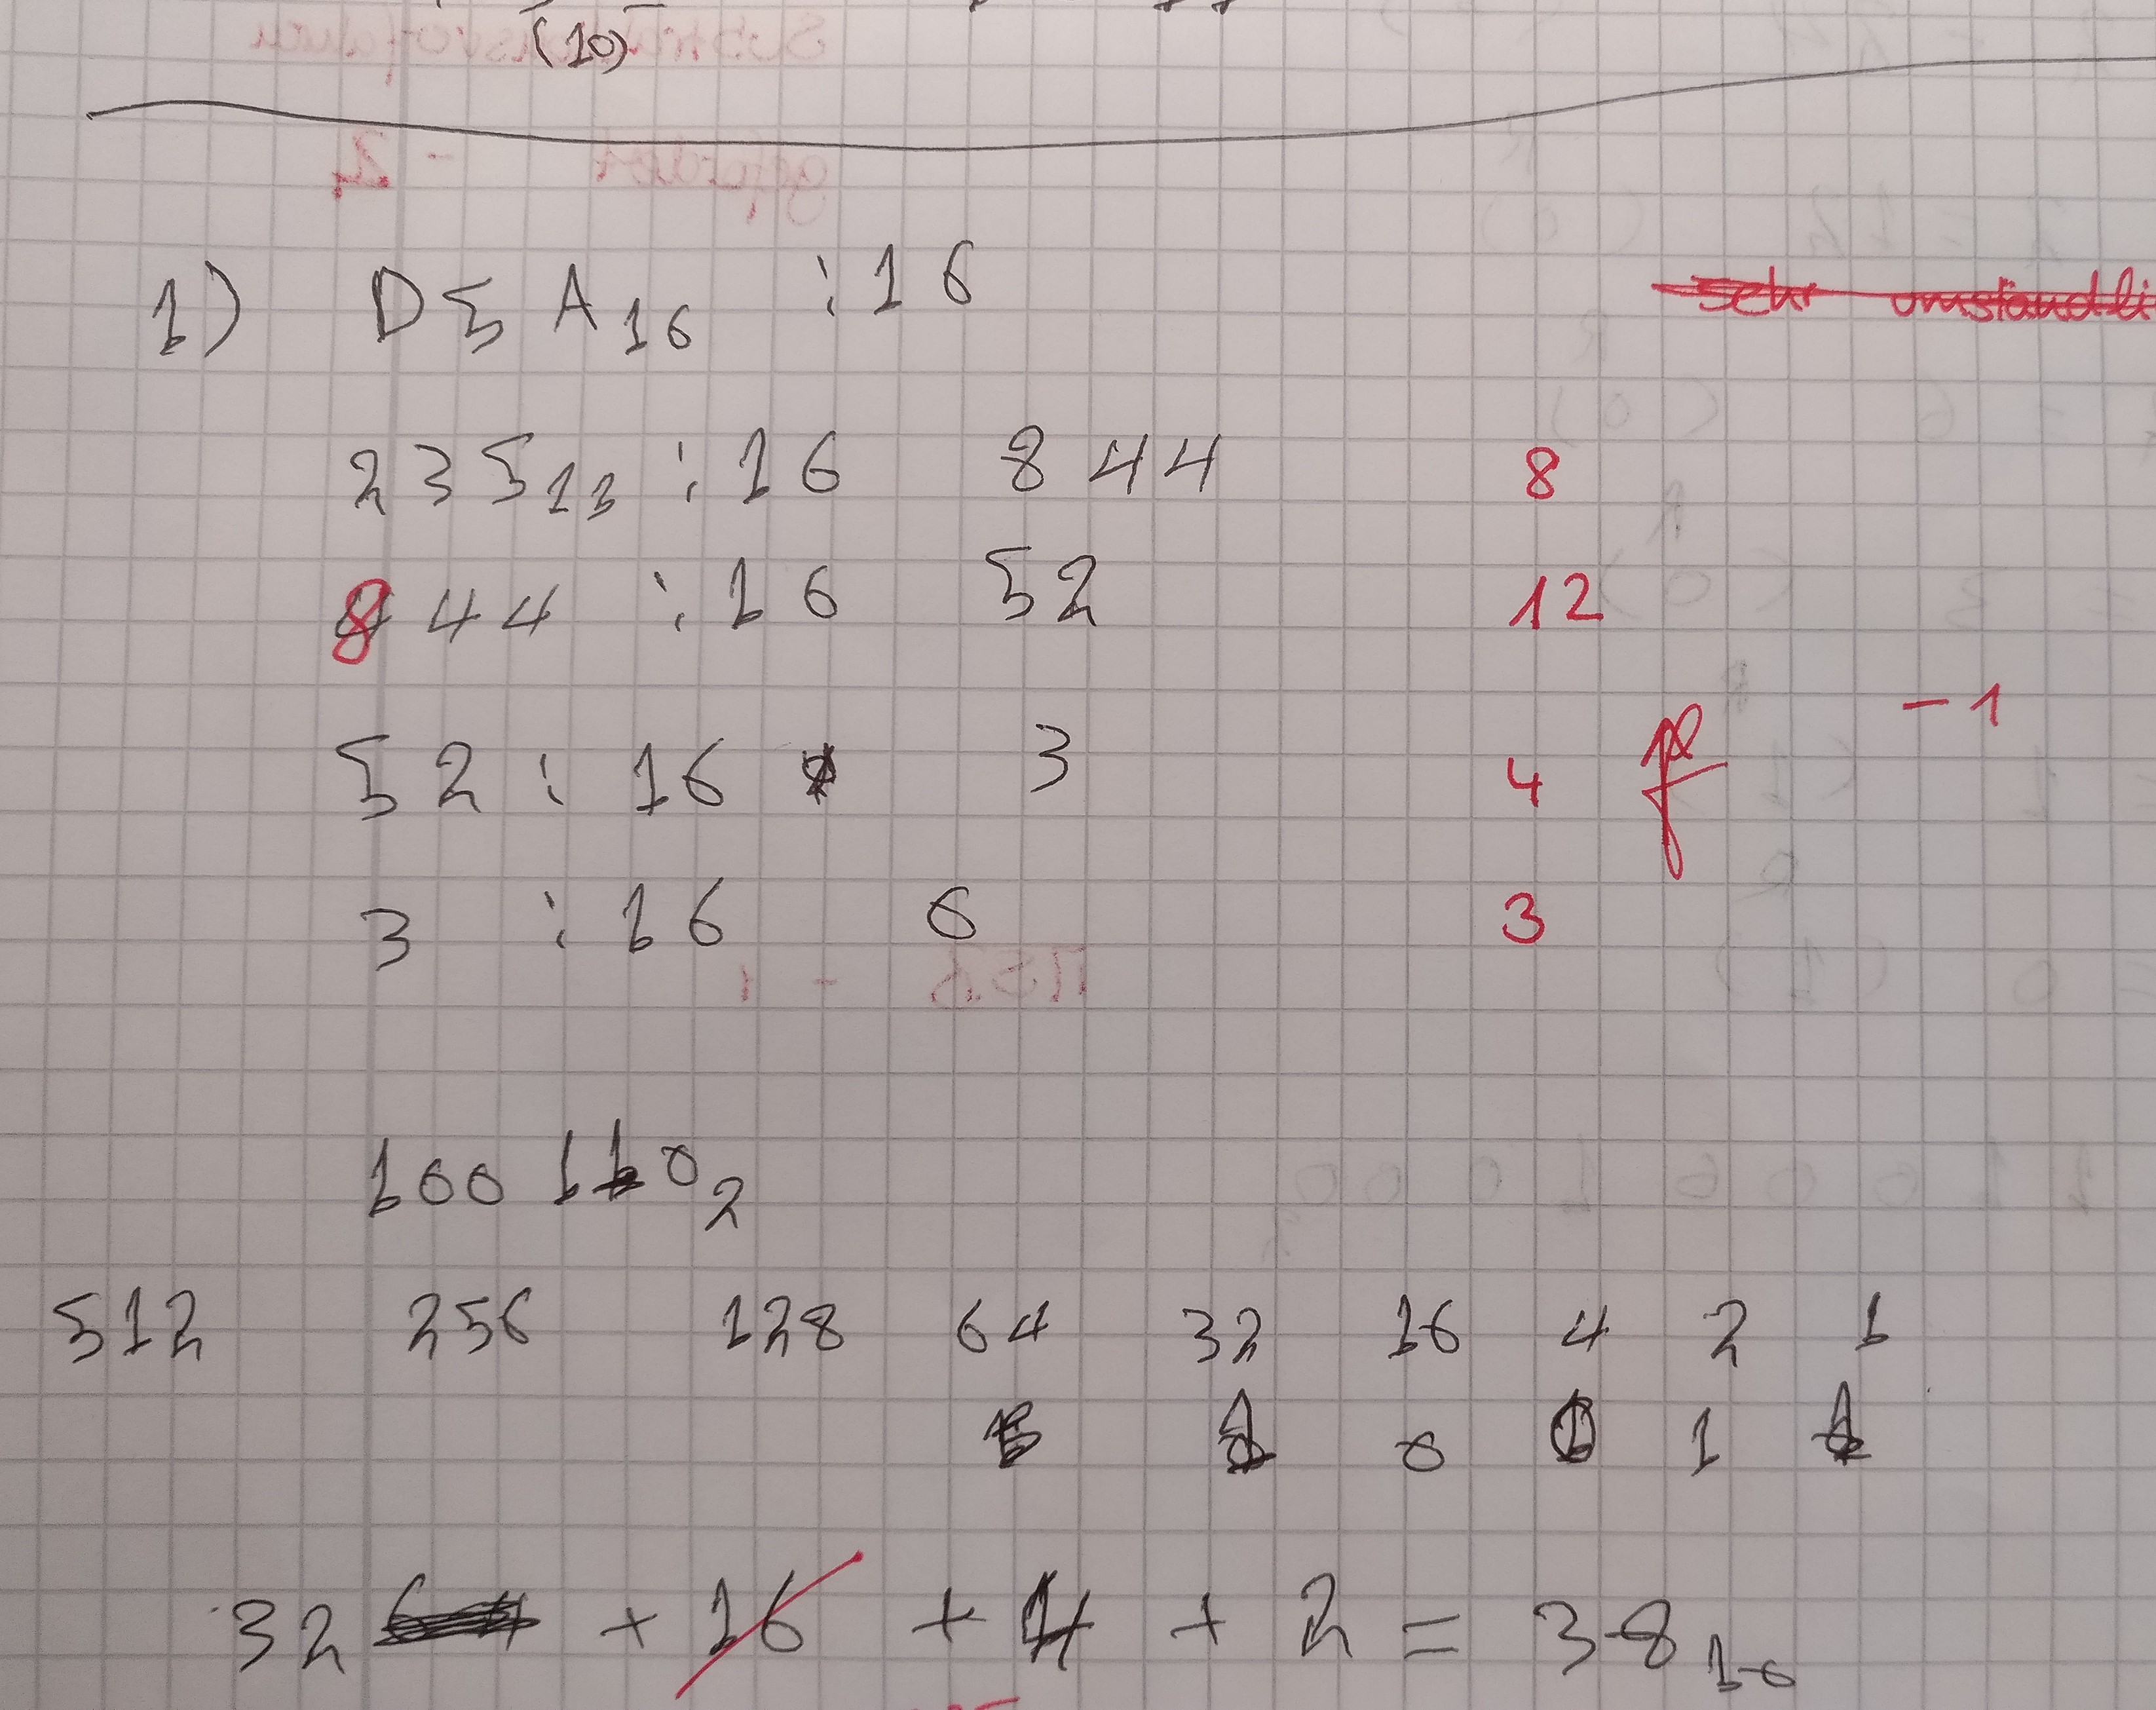 (10)
1) D5A16 :16 sehr umständli
23513 :16 844 8
844 :16 52 12
52 : 16 3 4 f -1
3 : 16 0 3
1001102
512 256 128 64 32 16 4 2 1
0 1 1
32 + 16 + 4 + 2 = 3810